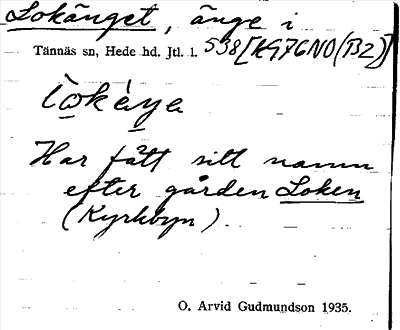 Lokänget, änge i
Tännäs sn, Hede hd. Jtl. l. 538 [KG76NO(B2)]
Har fått sitt namn
efter gården Loken
(Kyrkbyn).
O. Arvid Gudmundson 1935.